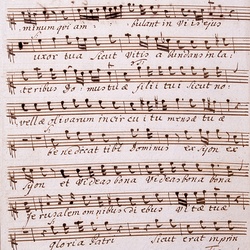 minum qui am bulant in viis ejus
uxor tua sicut vitis abundans in la
teribus Domus tuæ filii tui sicut no
vellæ olivarum in circuitu mensæ tuæ
benedicat tibi Dominus ex syon ex
syon et videas bona videas bona bona
Jerusalem omnibus diebus vitæ tuæ
gloria patri sicut erat in prin